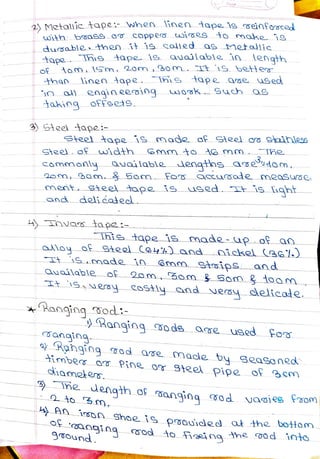 2) Metallic tape:- When linen tape is reinforced
with brass or copper wires to make is
durable, then it is called as Metallic
tape. This tape is available in length
of 10m, 15m, 20m, 30m. It is better
than linen tape. This tape are used
in all engineering work. Such as
taking offsets.
3) Steel tape:-
Steel tape is made of steel or stainless
steel of width 6mm to 16 mm. The
commonly available lengths are 10m,
20m, 30m, & 50m. For accurade measure
ment. steel tape is used. It is light
and delicated.
4) Invar tape:-
This tape is made-up of an
alloy of steel (64%) and nickel (36%)
It is made in 6mm strips and
available of 20m, 30m & 50m & 100m
It is very costly and very delicate.
* Ranging rod:-
1) Ranging rods are used for
ranging.
2) Ranging rod are made by seasoned
timber or Pine or steel pipe of 3cm
diameter.
3) The length of ranging rod varies from
2 to 3m.
4) An iron shoe is provided at the bottom
of ranging rod to fixing the rod into
ground.